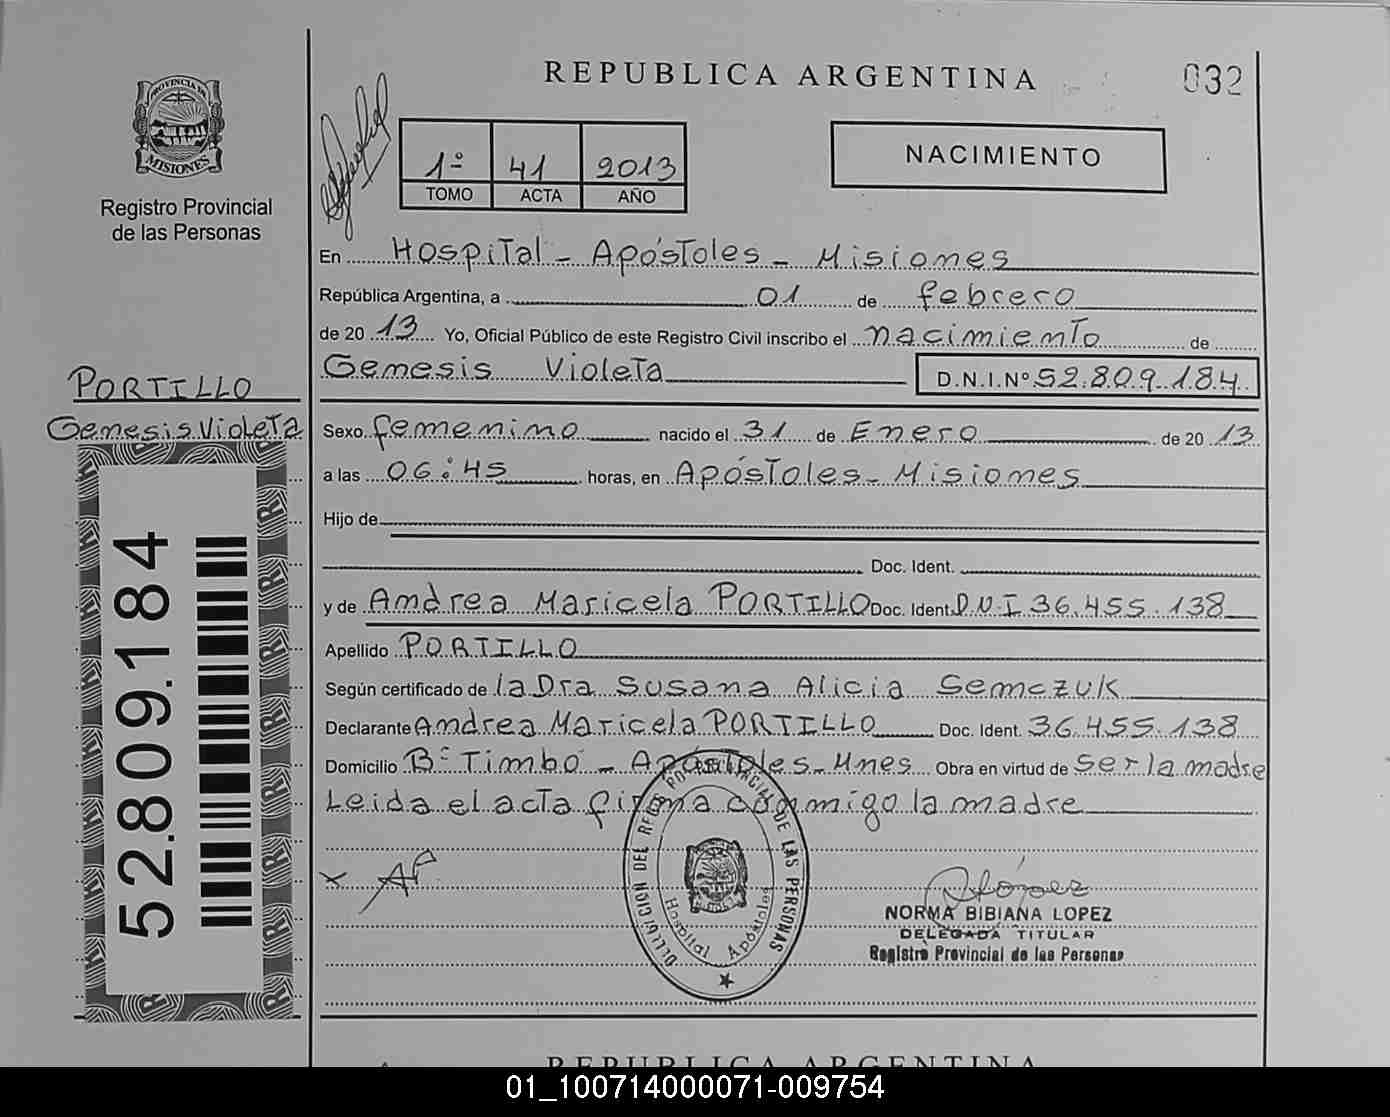 REPUBLICA ARGENTINA
032
PROVINCIA DE
MISIONES
Registro Provincial
de las Personas
1º 41 2013
TOMO ACTA AÑO
NACIMIENTO
En Hospital - Apóstoles - Misiones
República Argentina, a 01 de febrero
de 20 13 Yo, Oficial Público de este Registro Civil inscribo el nacimiento de
Genesis Violeta D.N.I.Nº 52.809.184
PORTILLO
Genesis Violeta
52.809.184
Sexo femenino nacido el 31 de Enero de 20 13
a las 06:45 horas, en Apóstoles - Misiones
Hijo de
Doc. Ident.
y de Andrea Maricela PORTILLO Doc. Ident. D.N.I 36.455.138
Apellido PORTILLO
Según certificado de la Dra Susana Alicia Semczuk
Declarante Andrea Maricela PORTILLO Doc. Ident. 36.455.138
Domicilio Bº Timbó - Apóstoles - Mnes Obra en virtud de ser la madre
Leida el acta firma conmigo la madre
x AP
DELEGACION DEL REGIS PROVINCIAL DE LAS PERSONAS
Hospital Apóstoles
NORMA BIBIANA LOPEZ
DELEGADA TITULAR
Registro Provincial de las Personas
REPUBLICA ARGENTINA
01_100714000071-009754